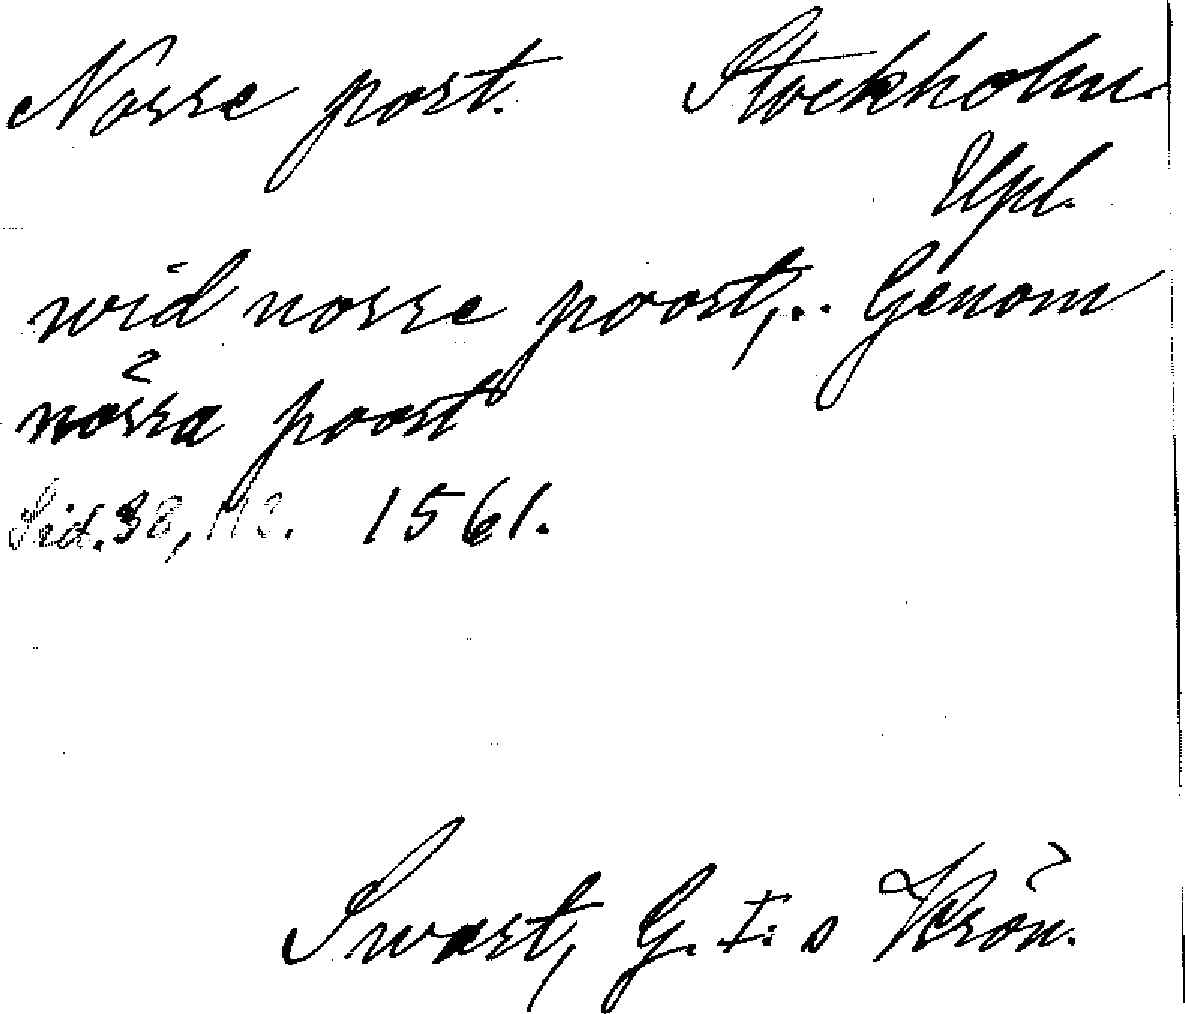 Norre port. Stockholm.
Upl.
wid norre poort,.. Genom
nörra poort
Sid. 38, 112. 1561.
Swart, G. I:s Krön.